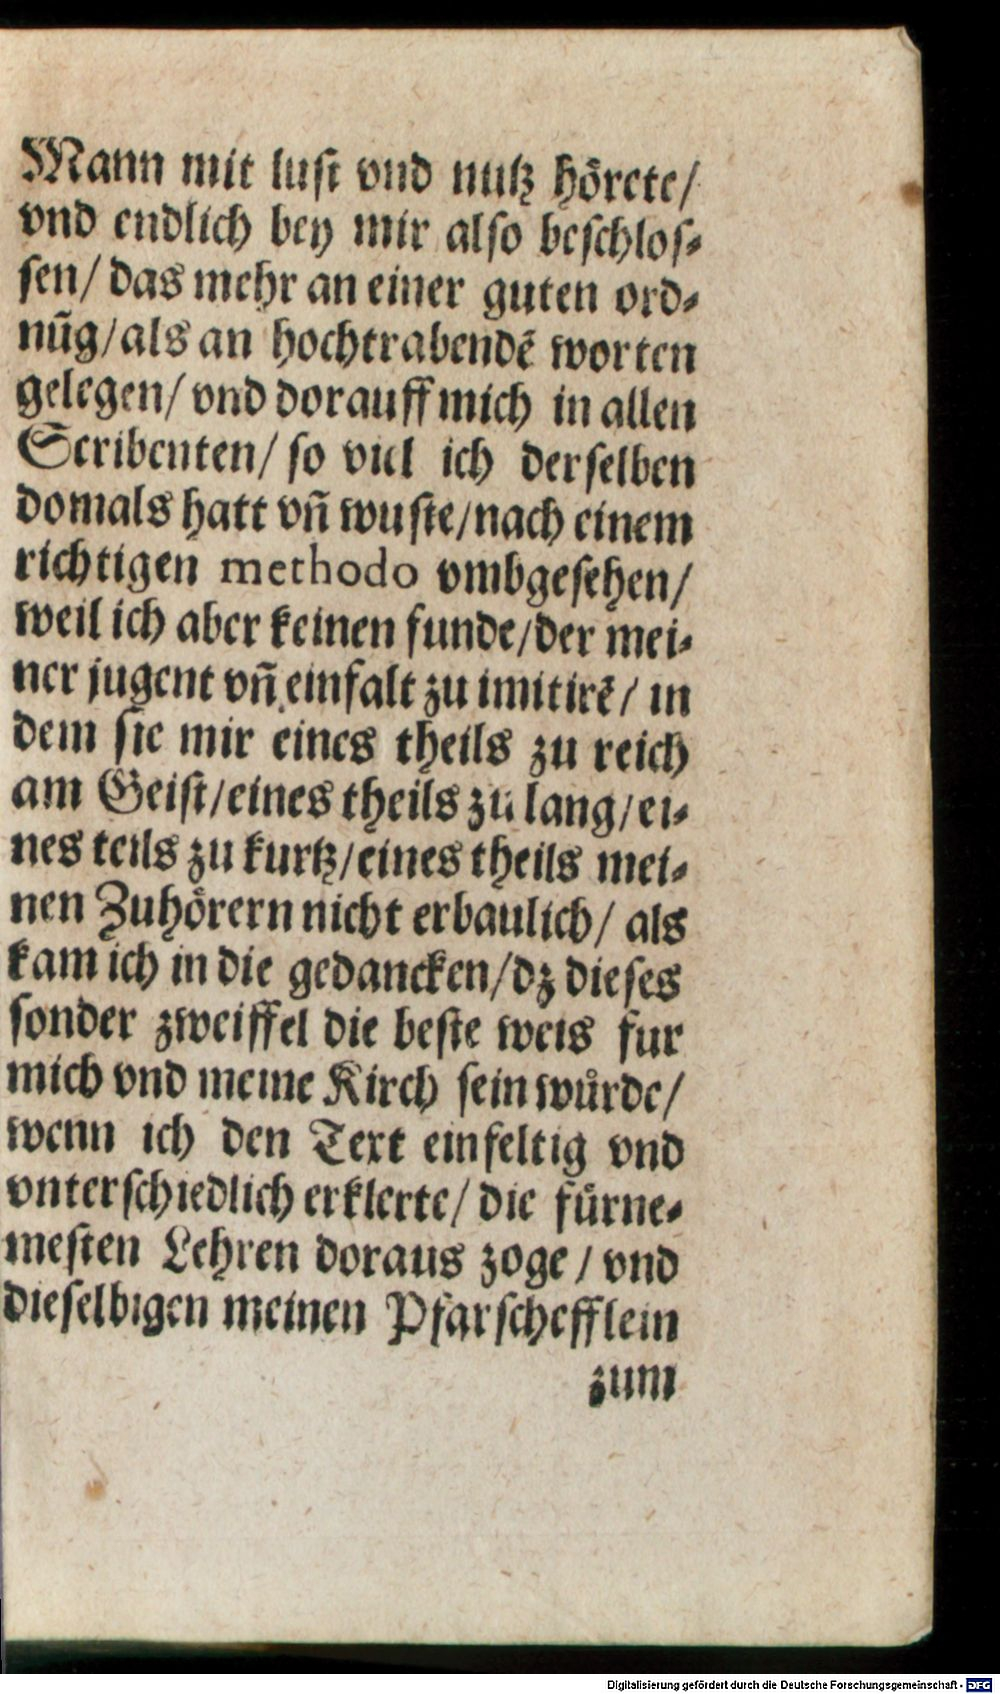 Mann mit lust vnd nutz hörete/
vnd endlich bey mir also beschlos-
sen/ das mehr an einer guten ord-
nũg/als an hochtrabendẽ worten
gelegen/ vnd dorauff mich in allen
Scribenten/ so viel ich derselben
domals hatt vñ wuste/nach einem
richtigen methodo vmbgesehen/
weil ich aber keinen funde/der mei-
ner jugent vñ einfalt zu imitirẽ/ in
dem sie mir eines theils zu reich
am Geist/eines theils zu lang/ei-
nes teils zu kurtz/eines theils mei-
nen Zuhörern nicht erbaulich/ als
kam ich in die gedancken/dz dieses
sonder zweiffel die beste weis fur
mich vnd meine Kirch sein wuͤrde/
wenn ich den Text einfeltig vnd
vnterschiedlich erklerte/ die fürne-
mesten Lehren doraus zoge/ vnd
dieselbigen meinen Pfarschefflein
zum
Digitalisierung gefördert durch die Deutsche Forschungsgemeinschaft - DFG